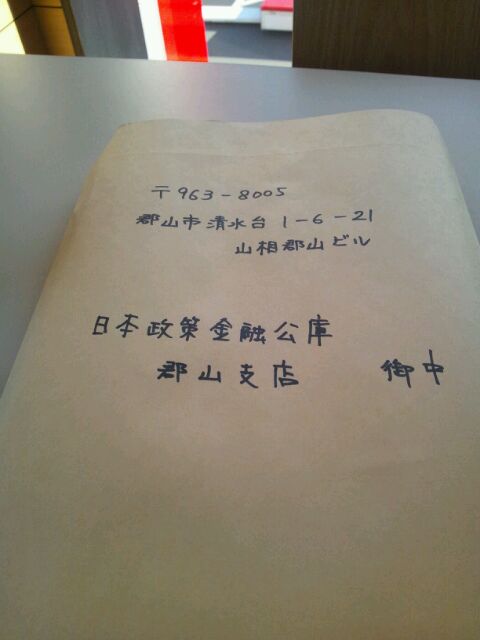 〒963-8005
郡山市清水台1-6-21
山相郡山ビル
日本政策金融公庫
郡山支店 御中